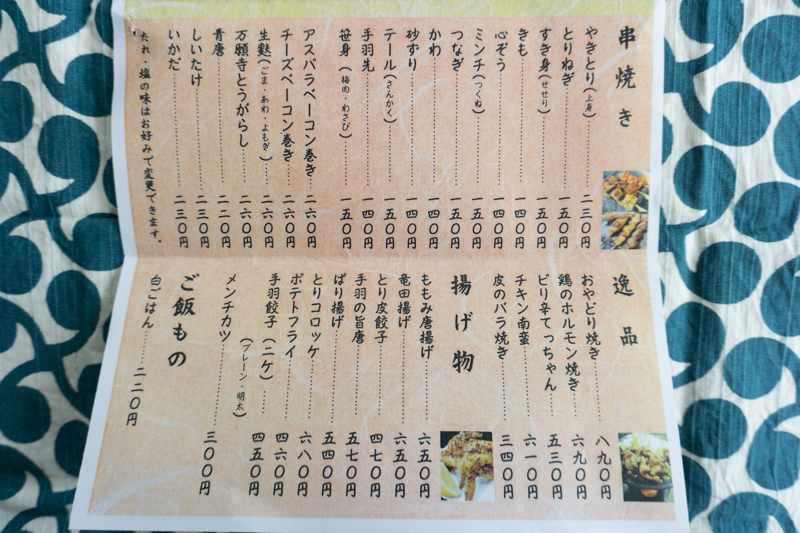 串焼き
やきとり（上身）……二三〇円
とりねぎ……一五〇円
すき身（せせり）……一五〇円
きも……一四〇円
心ぞう……一四〇円
ミンチ（つくね）……一五〇円
つなぎ……一五〇円
かわ……一四〇円
砂ずり……一四〇円
テール（さんかく）……一五〇円
手羽先……一四〇円
笹身（梅肉・わさび）……一五〇円
アスパラベーコン巻き……二六〇円
チーズベーコン巻き……二六〇円
生麩（ごま・あわ・よもぎ）……二六〇円
万願寺とうがらし……二六〇円
青唐……二二〇円
しいたけ……二三〇円
いかだ……二三〇円
たれ・塩の味はお好みで変更できます。
逸品
おやどり焼き……八九〇円
鶏のホルモン焼き……六九〇円
ピリ辛てっちゃん……五三〇円
チキン南蛮……六一〇円
皮のバラ焼き……三四〇円
揚げ物
ももみ唐揚げ……六五〇円
竜田揚げ……六五〇円
とり皮餃子……四七〇円
手羽の旨唐……五七〇円
ばり揚げ……五四〇円
とりコロッケ……六八〇円
ポテトフライ……四六〇円
手羽餃子（ニケ）……四五〇円
（プレーン・明太）
メンチカツ……三〇〇円
ご飯もの
白ごはん……二二〇円